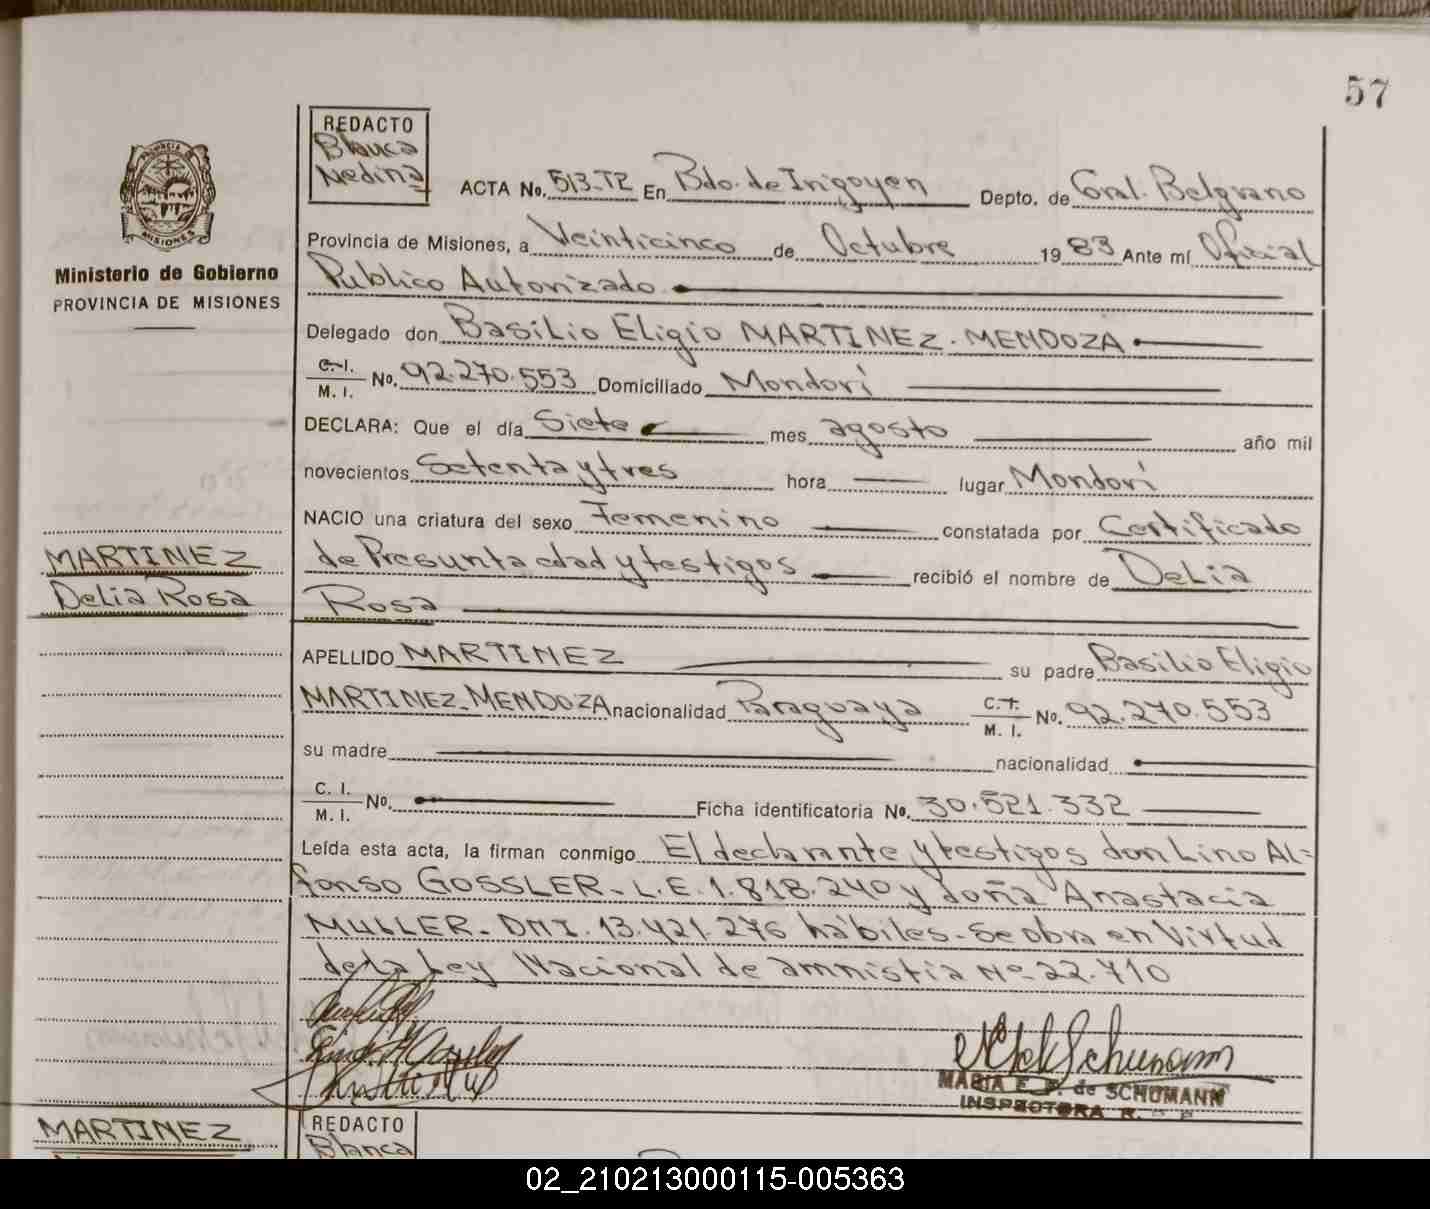 57
REDACTO
Blanca
Medina
ACTA No. 513-T2 En Bdo. de Irigoyen Depto. de Gral. Belgrano
PROVINCIA DE
MISIONES
Ministerio de Gobierno
PROVINCIA DE MISIONES
Provincia de Misiones, a Veinticinco de Octubre 19 83 Ante mí Oficial
Publico Autorizado
Delegado don Basilio Eligio MARTINEZ-MENDOZA
C.I. M. I. No. 92.270.553 Domiciliado Mondorí
DECLARA: Que el día Siete mes agosto año mil
novecientos Setenta y tres hora lugar Mondorí
NACIO una criatura del sexo Femenino constatada por Certificado
MARTINEZ
de Presunta edad y testigos recibió el nombre de Delia
Delia Rosa
Rosa
APELLIDO MARTINEZ su padre Basilio Eligio
MARTINEZ-MENDOZA nacionalidad Paraguaya C.I. M. I. No. 92.270.553
su madre nacionalidad
C. I. M. I. No. Ficha identificatoria No. 30.521.332
Leída esta acta, la firman conmigo El declarante y testigos don Lino Al=
fonso GOSSLER-L.E. 1.818.240 y doña Anastacia
MULLER-DNI. 13.421.276 hábiles-Se obra en Virtud
de la Ley Nacional de amnistia Nº 22.710
Schumann
MARIA E. de SCHUMANN
INSPECTORA R.
MARTINEZ
REDACTO
Blanca
02_210213000115-005363